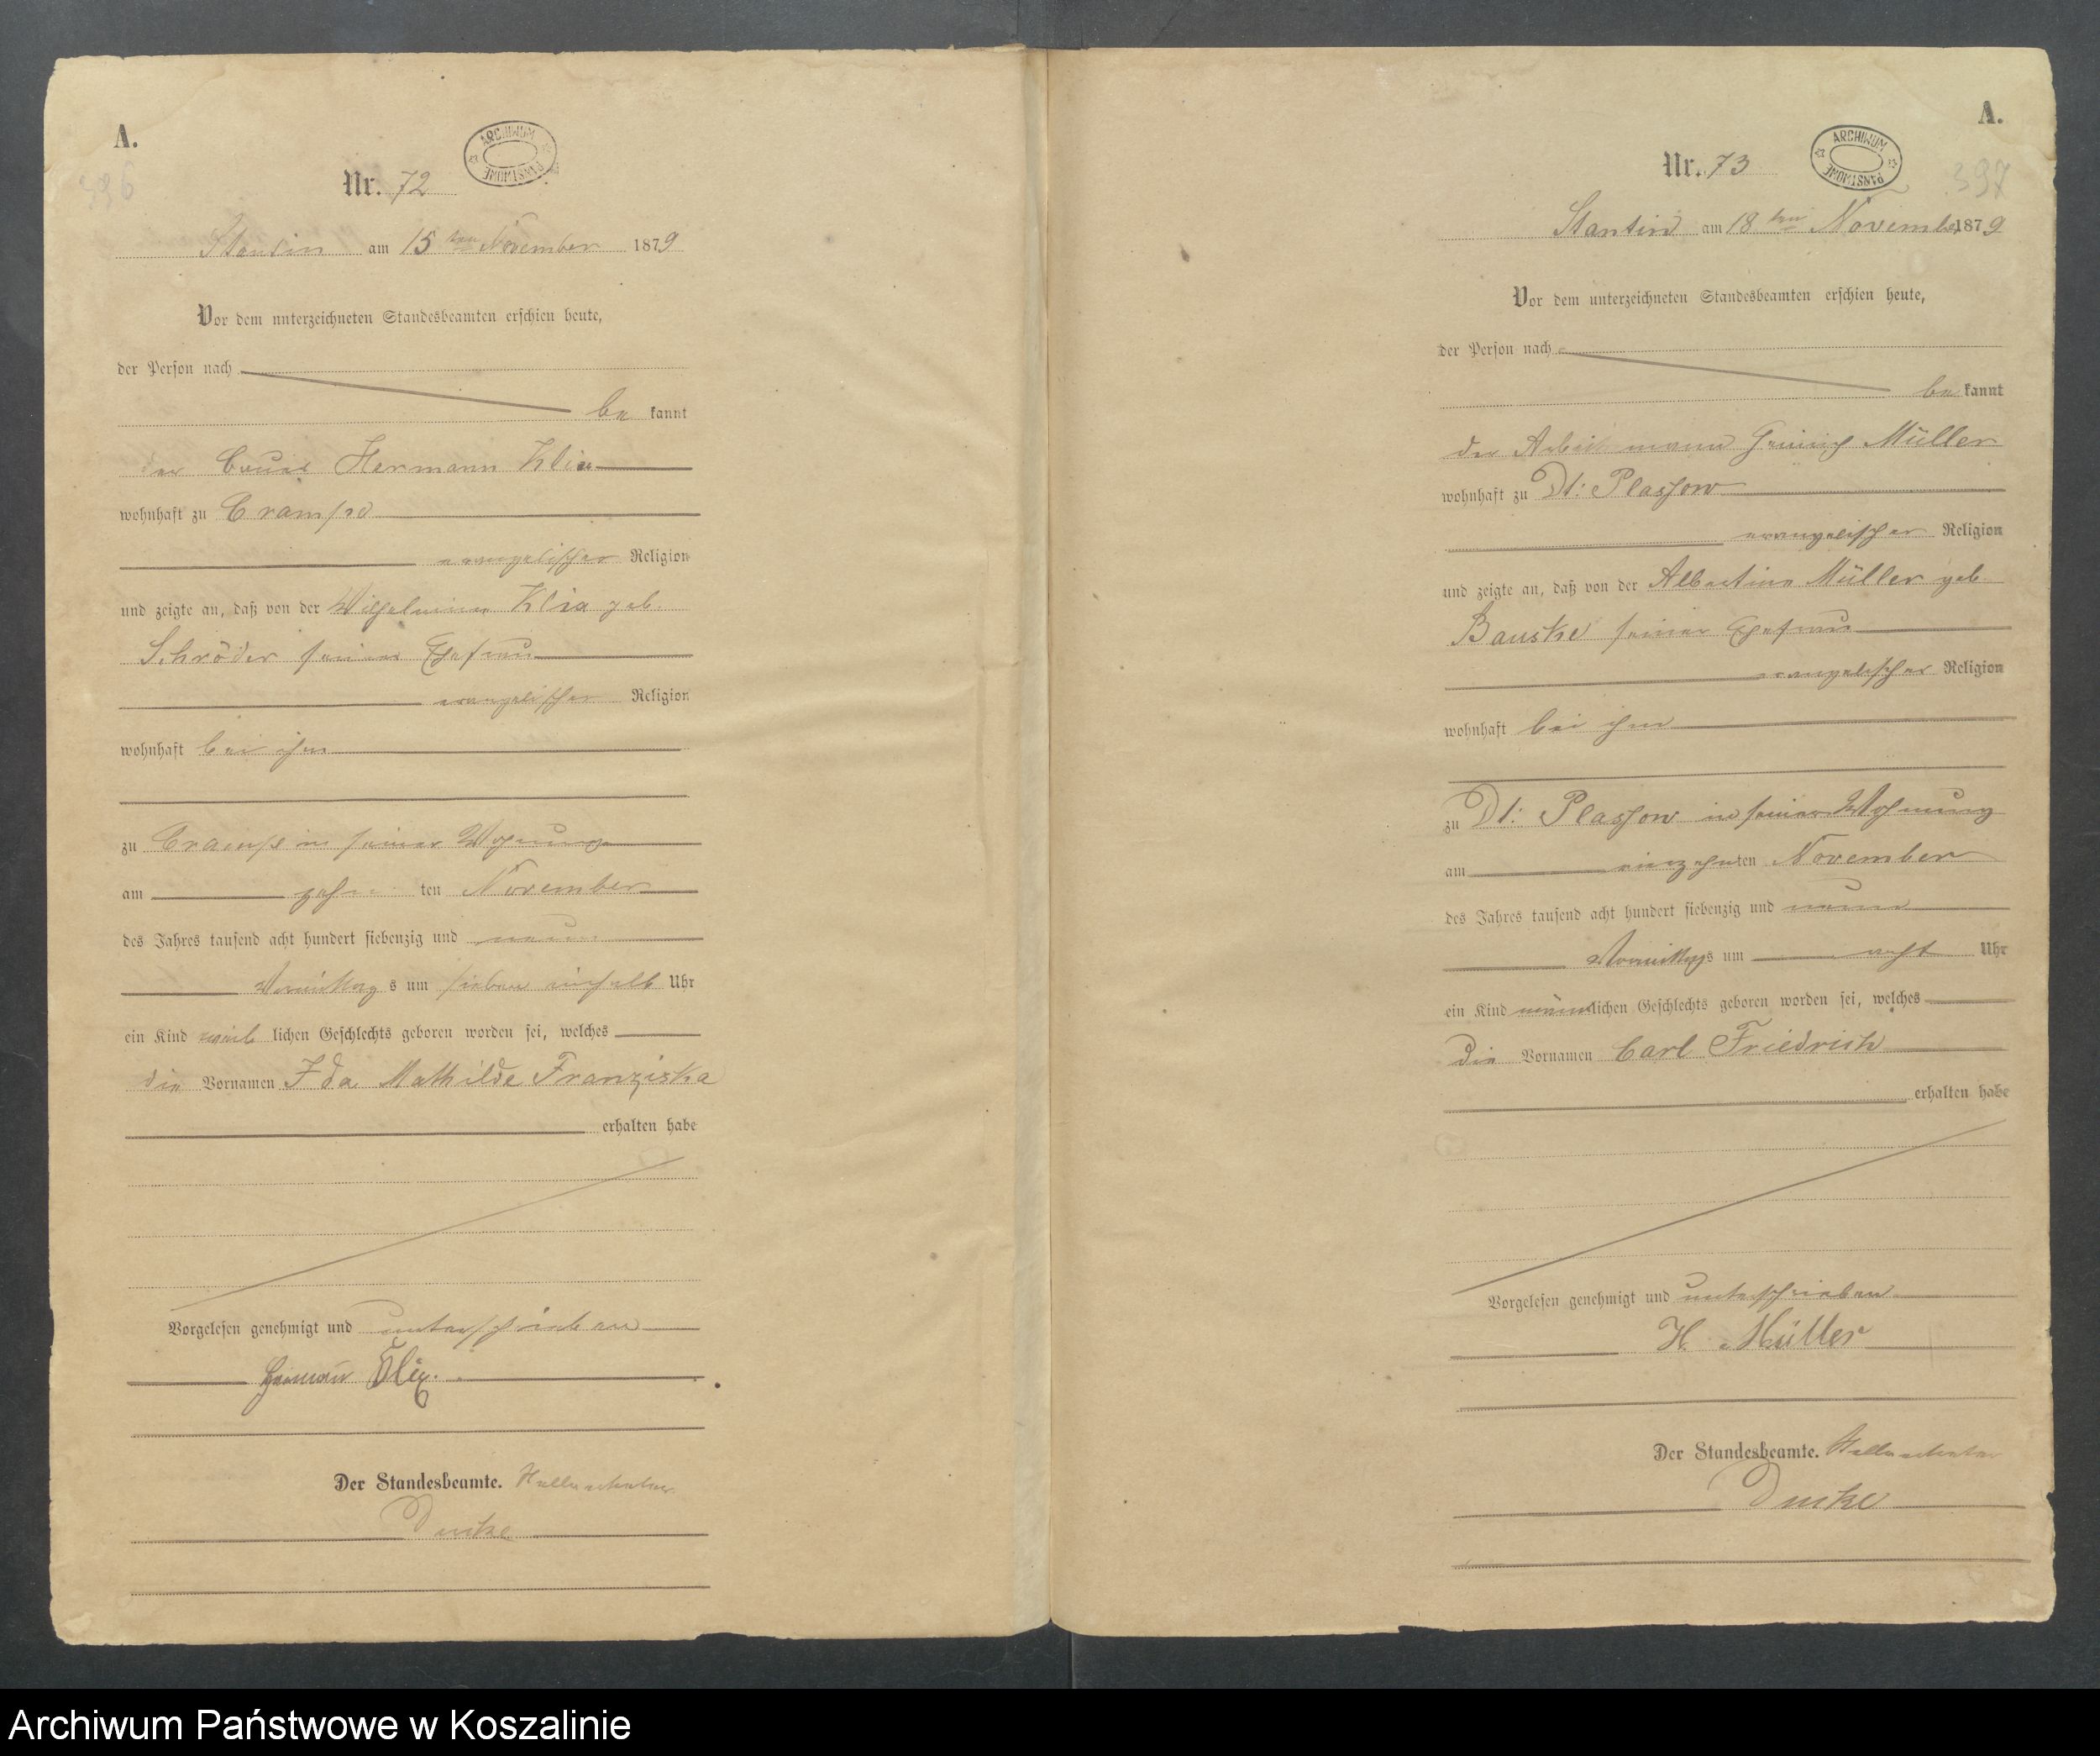 A.
396
Nr. 72
ARCHIWUM PAŃSTWOWE
Stantin am 15ten November 1879
Vor dem unterzeichneten Standesbeamten erschien heute,
der Person nach
be kannt
der Hermann
wohnhaft zu Crampe
evangelischer Religion
und zeigte an, daß von der Wilhelmine geb.
Schröder seiner Ehefrau
evangelischer Religion
wohnhaft bei ihm
zu Crampe in seiner Wohnung
am zehn ten November
des Jahres tausend acht hundert siebenzig und neun
Vormittags um sieben einhalb Uhr
ein Kind weib lichen Geschlechts geboren worden sei, welches
die Vornamen Ida Mathilde Franziska
erhalten habe
Vorgelesen genehmigt und unterschrieben
Herman
Der Standesbeamte.
A.
397
Nr. 73
ARCHIWUM PAŃSTWOWE
Stantin am 18ten November 1879
Vor dem unterzeichneten Standesbeamten erschien heute,
der Person nach
be kannt
der Arbeitsmann Heinrich Müller
wohnhaft zu Dt: Plassow
evangelischer Religion
und zeigte an, daß von der Albertine Müller geb
Bauske seiner Ehefrau
evangelischer Religion
wohnhaft bei ihm
zu Dt: Plassow in seiner Wohnung
am ten November
des Jahres tausend acht hundert siebenzig und neun
Vormittags um acht Uhr
ein Kind männlichen Geschlechts geboren worden sei, welches
die Vornamen Carl Friedrich
erhalten habe
Vorgelesen genehmigt und unterschrieben
H. Müller
Der Standesbeamte.
Archiwum Państwowe w Koszalinie